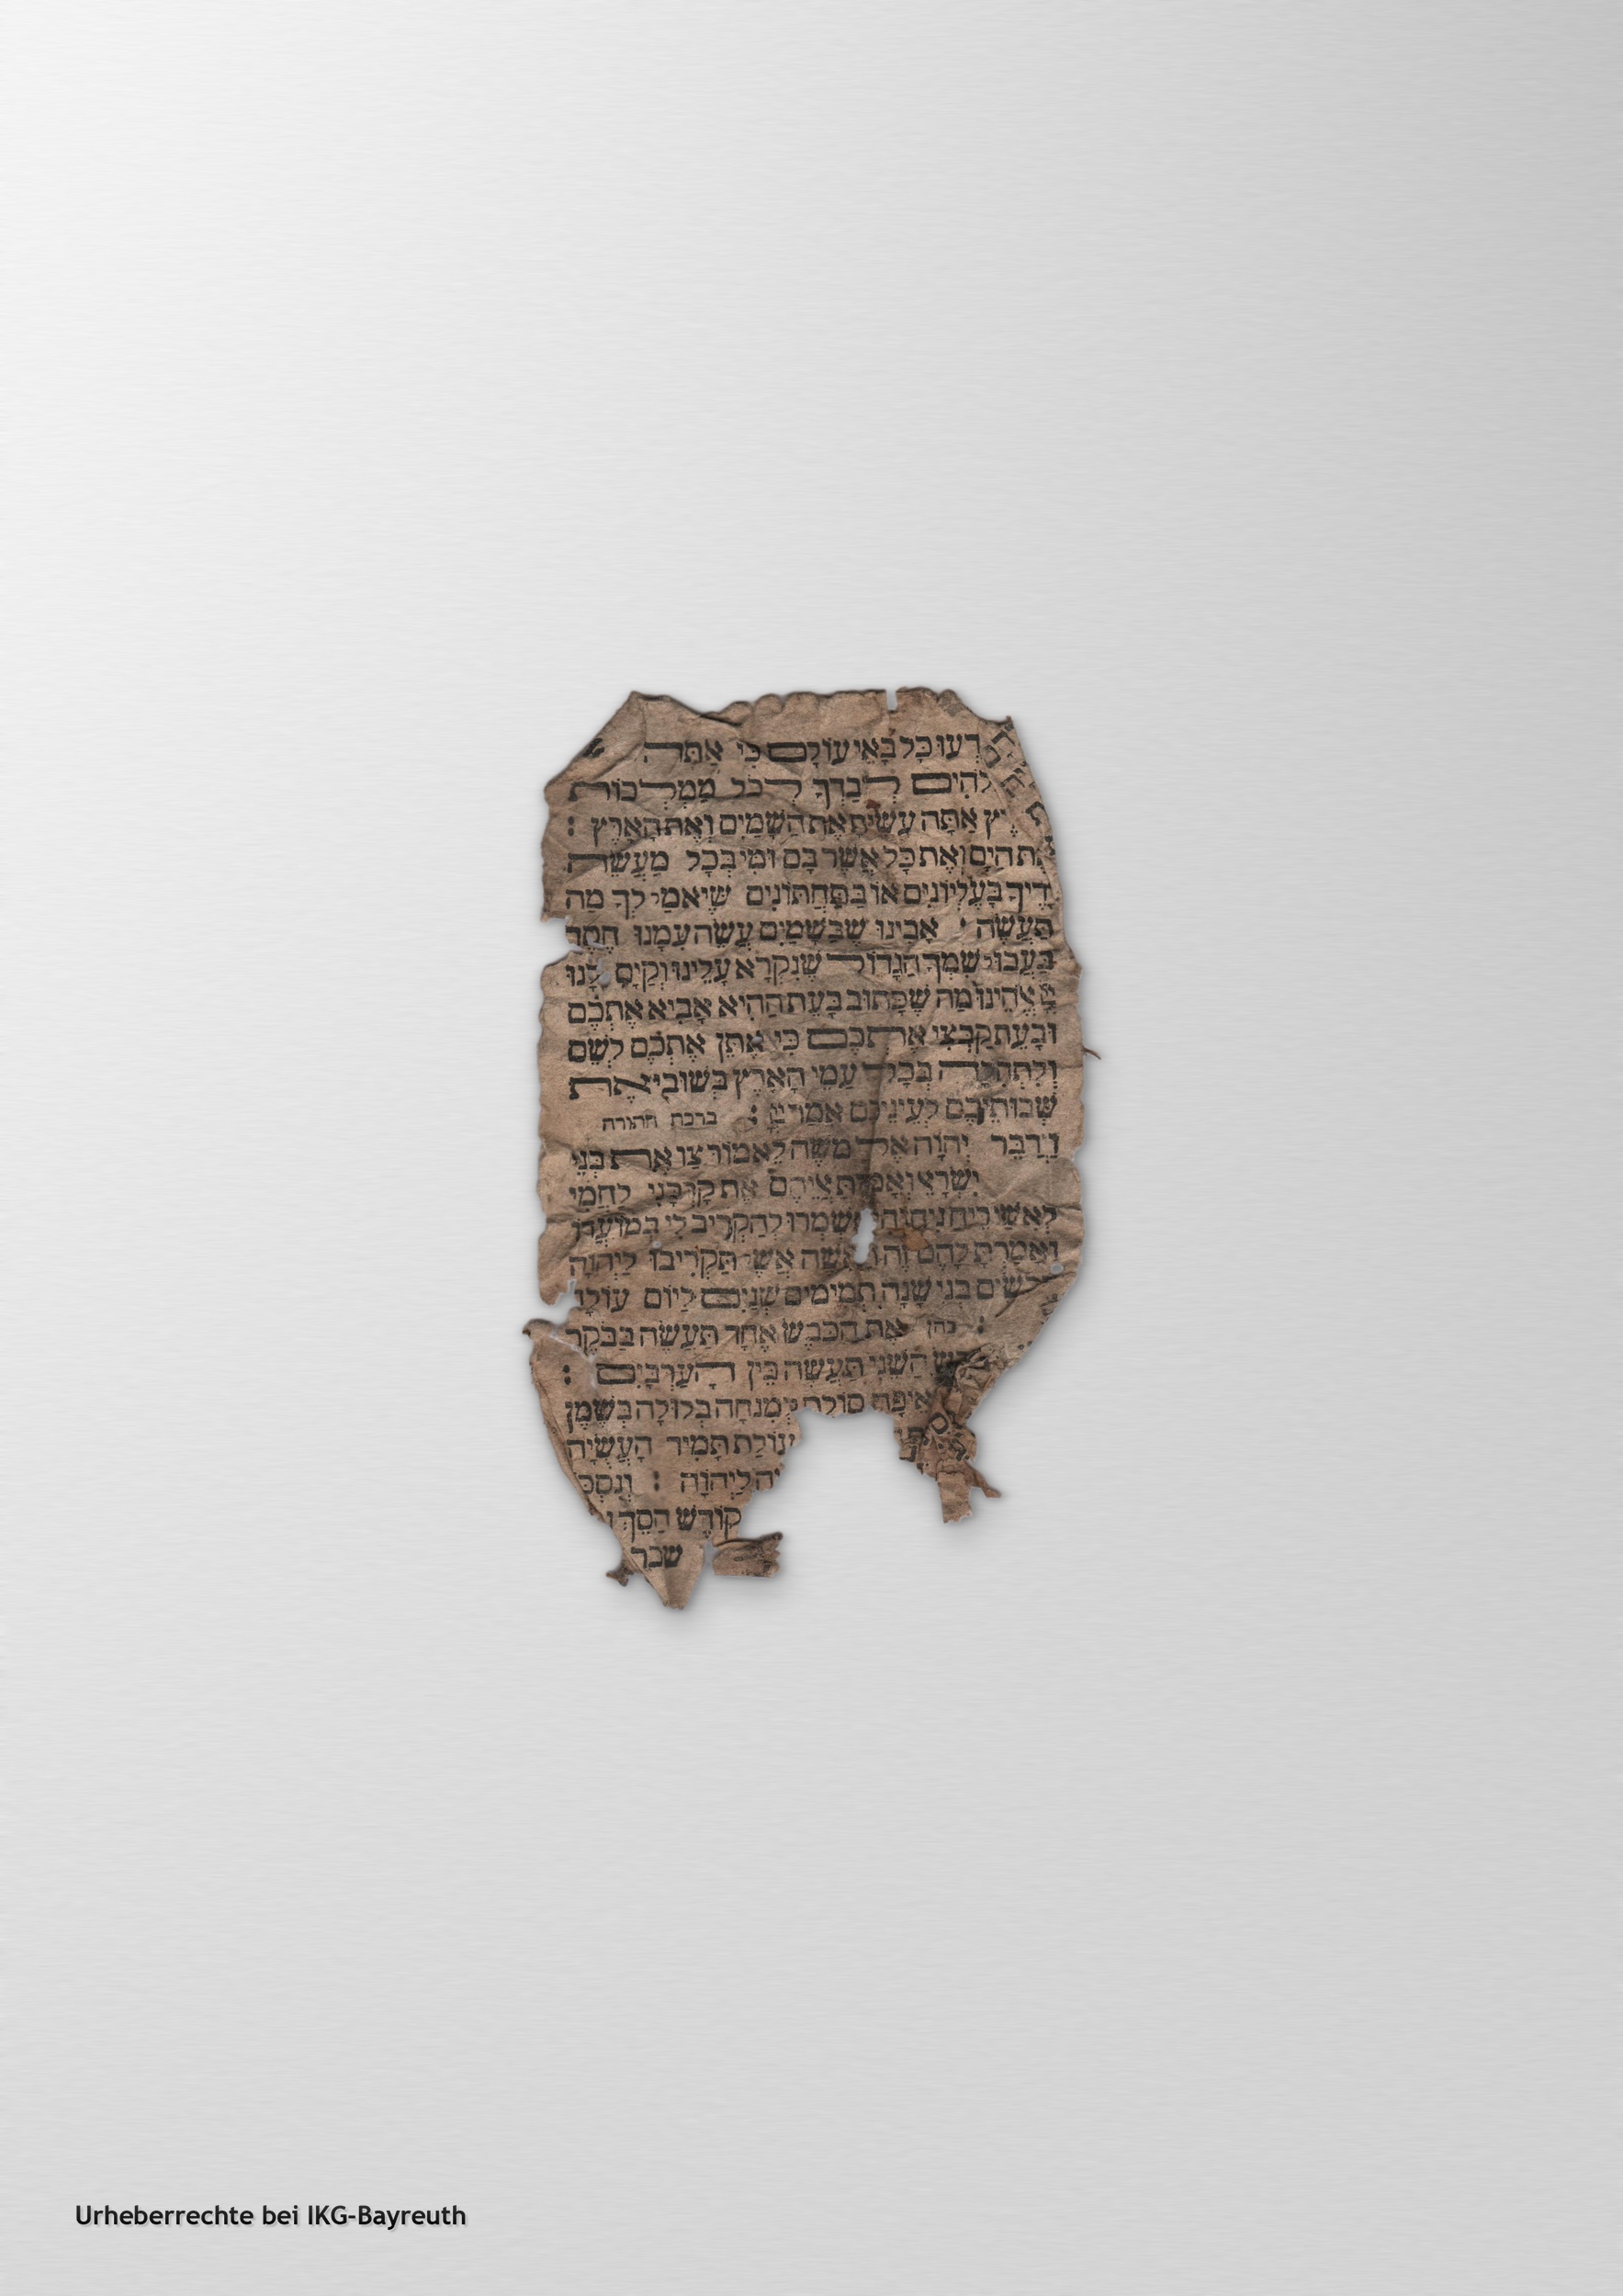 וְיֵדְעוּ כָּל בָּאֵי עוֹלָם כִּי אַתָּה
לְבַדְּךָ לְכֹל מַמְלְכוֹת
אַתָּה עָשִׂיתָ אֶת הַשָּׁמַיִם וְאֶת הָאָרֶץ :
וְאֶת כָּל אֲשֶׁר בָּם וּמִי בְּכָל מַעֲשֵׂה
בָּעֶלְיוֹנִים אוֹ בַּתַּחְתּוֹנִים שֶׁיֹּאמַר לְךָ מַה
תַּעֲשֶׂה : אָבִינוּ שֶׁבַּשָּׁמַיִם עֲשֵׂה עִמָּנוּ חֶסֶד
בַּעֲבוּר שִׁמְךָ הַגָּדוֹל שֶׁנִּקְרָא עָלֵינוּ וְקַיֵּם לָנוּ
מַה שֶּׁכָּתוּב בָּעֵת הַהִיא אָבִיא אֶתְכֶם
וּבָעֵת קַבְּצִי אֶתְכֶם כִּי אֶתֵּן אֶתְכֶם לְשֵׁם
וְלִתְהִלָּה בְּכֹל עַמֵּי הָאָרֶץ בְּשׁוּבִי אֶת
שְׁבוּתֵיכֶם לְעֵינֵיכֶם אָמַר יְיָ : ברכת התורה
וַיְדַבֵּר יְהוָה אֶל מֹשֶׁה לֵּאמוֹר צַו אֶת בְּנֵי
אֶת קָרְבָּנִי לַחְמִי
לְאִשַּׁי תִּשְׁמְרוּ לְהַקְרִיב לִי בְּמוֹעֲדוֹ
וְאָמַרְתָּ לָהֶם אֲשֶׁר תַּקְרִיבוּ לַיהוָה
בְּנֵי שָׁנָה תְמִימִים שְׁנַיִם לַיּוֹם
: כהן אֶת הַכֶּבֶשׂ אֶחָד תַּעֲשֶׂה בַבֹּקֶר
הַשֵּׁנִי תַּעֲשֶׂה בֵּין הָעַרְבָּיִם :
סוֹלֶת לְמִנְחָה בְּלוּלָה בְּשֶׁמֶן
עוֹלַת תָּמִיד הָעֲשֻׂיָה
לַיהוָה : וְנִסְכּ
הַסֵּךְ
שכר
Urheberrechte bei IKG-Bayreuth